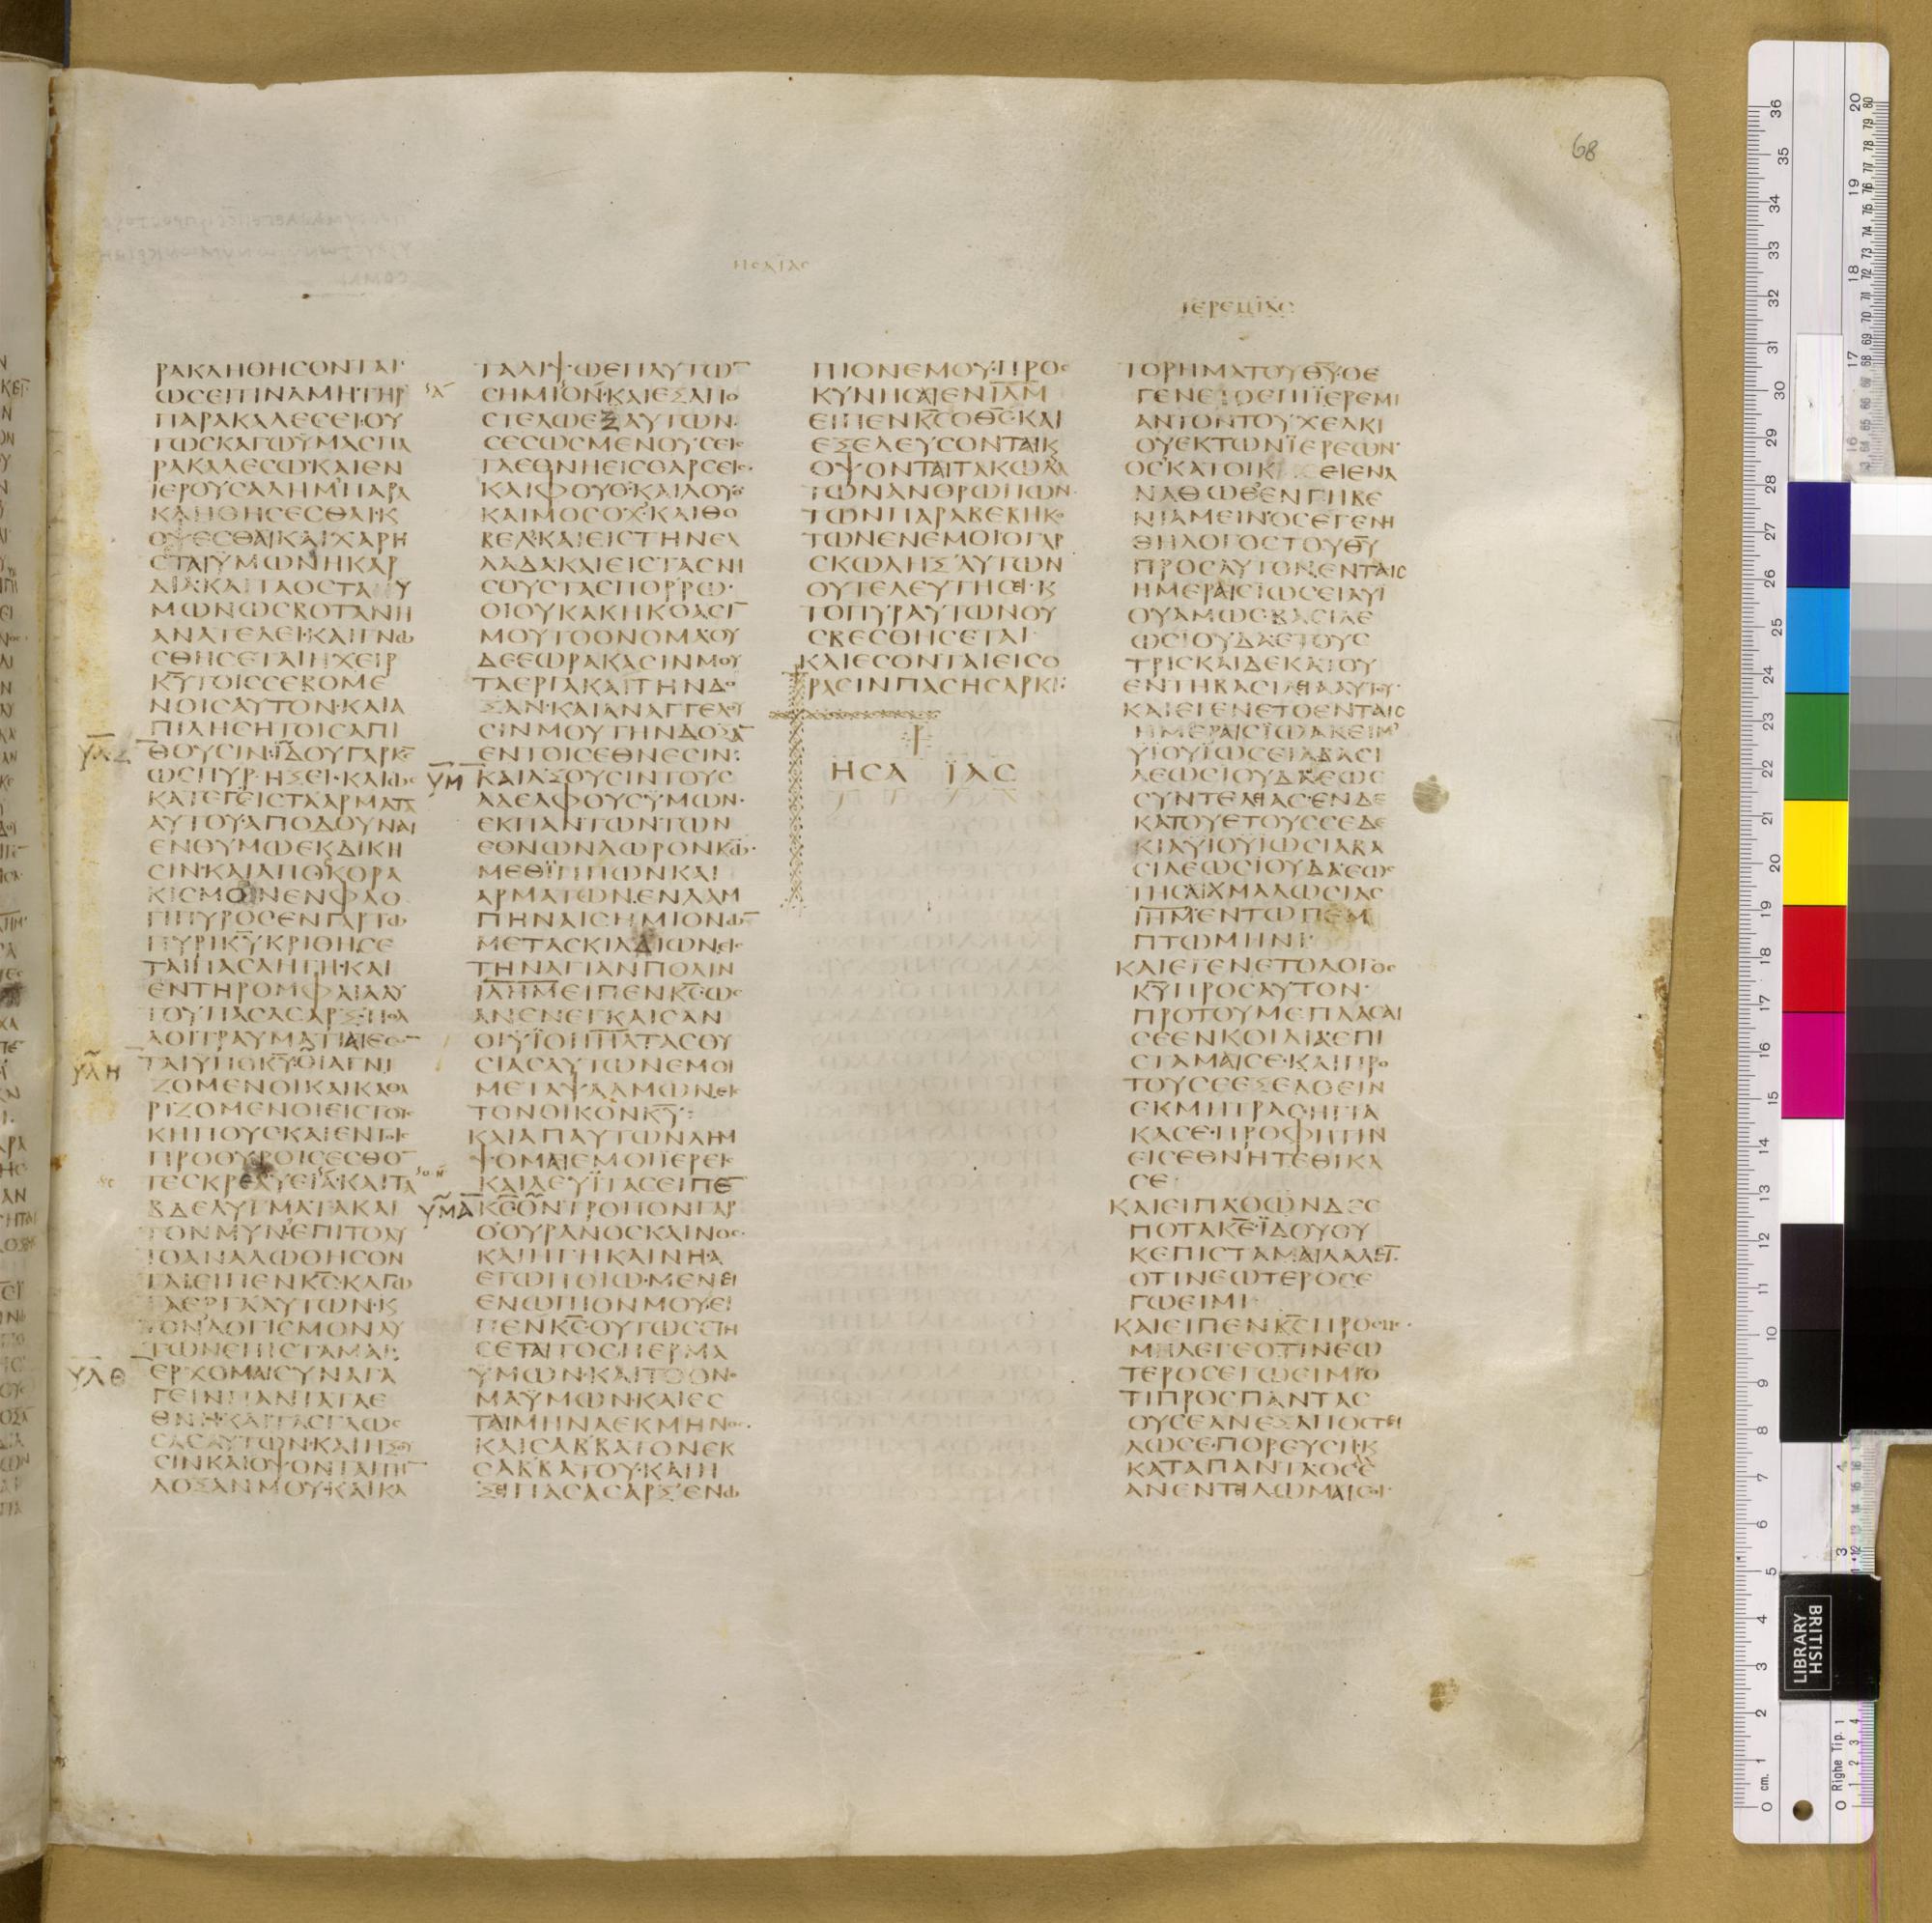 68
ΗϹΑΪΑϹ
ΪΕΡΕΜΙΑϹ
ΡΑΚΛΗΘΗϹΟΝΤΑΙ·
ΩϹΕΙΤΙΝΑΜΗΤΗΡ
ΠΑΡΑΚΑΛΕϹΕΙ·ΟΥ
ΤΩϹΚΑΓΩΫΜΑϹΠΑ
ΡΑΚΑΛΕϹΩ·ΚΑΙΕΝ
ΙΕΡΟΥϹΑΛΗΜΠΑΡΑ
ΚΛΗΘΗϹΕϹΘΑΙ·Κ
ΟΨΕϹΘΑΙΚΑΙΧΑΡΗ
ϹΤΑΙΫΜΩΝΗΚΑΡ
ΔΙΑ·ΚΑΙΤΑΟϹΤΑΥ
ΜΩΝΩϹΒΟΤΑΝΗ
ΑΝΑΤΕΛΕΙ·ΚΑΙΓΝΩ
ϹΘΗϹΕΤΑΙΗΧΕΙΡ
Κ̅Υ̅ΤΟΙϹϹΕΒΟΜΕ
ΝΟΙϹΑΥΤΟΝ·ΚΑΙΑ
ΠΙΛΗϹΗΤΟΙϹΑΠΙ
ΘΟΥϹΙΝ·ΪΔΟΥΓΑΡΚ̅Ϲ̅
ΩϹΠΥΡ·ΗΞΕΙ·ΚΑΙΩϹ
ΚΑΤΕΓΕΙϹΤΑΑΡΜΑΤΑ
ΑΥΤΟΥ·ΑΠΟΔΟΥΝΑΙ
ΕΝΘΥΜΩΕΚΔΙΚΗ
ϹΙΝ·ΚΑΙΑΠΟϹΚΟΡΑ
ΚΙϹΜΟΝΕΝΦΛΟ
ΓΙΠΥΡΟϹΕΝΓΑΡΤΩ
ΠΥΡΙΚ̅Υ̅ΚΡΙΘΗϹΕ
ΤΑΙΠΑϹΑΗΓΗ·ΚΑΙ
ΕΝΤΗΡΟΜΦΑΙΑΑΥ
ΤΟΥΠΑϹΑϹΑΡΞ·ΠΟΛ
ΛΟΙΤΡΑΥΜΑΤΙΑΙΕϹΟΝ
ΤΑΙΫΠΟΚ̅Υ̅ΟΙΑΓΝΙ
ΖΟΜΕΝΟΙΚΑΙΚΑΘΑ
ΡΙΖΟΜΕΝΟΙΕΙϹΤΟΥϹ
ΚΗΠΟΥϹΚΑΙΕΝΤΟΙϹ
ΠΡΟΘΥΡΟΙϹΕϹΘΟΝ
ΤΕϹΚΡΕΑΥΕΙΑ·ΚΑΙΤΑ
ΒΔΕΛΥΓΜΑΤΑΚΑΙ
ΤΟΝΜΥΝ·ΕΠΙΤΟΑΥ
ΤΟΑΝΑΛΩΘΗϹΟΝ
ΤΑΙ·ΕΙΠΕΝΚ̅Ϲ̅·ΚΑΓΩ
ΤΑΕΡΓΑΑΥΤΩΝ·Κ
ΤΟΝΛΟΓΙϹΜΟΝΑΥ
ΤΩΝΕΠΙϹΤΑΜΑΙ:
ΕΡΧΟΜΑΙϹΥΝΑΓΑ
ΓΕΙΝΠΑΝΤΑΤΑΕ
ΘΝΗ·ΚΑΙΤΑϹΓΛΩϹ
ϹΑϹΑΥΤΩΝ·ΚΑΙΗΞΟΥ
ϹΙΝΚΑΙΟΨΟΝΤΑΙΤΗΝ
ΔΟΞΑΝΜΟΥ·ΚΑΙΚΑ
ΤΑΛΙΨΩΕΠΑΥΤΩΝ
ϹΗΜΙΟΝ·ΚΑΙΕΞΑΠΟ
ϹΤΕΛΩΕΞΑΥΤΩΝ·
ϹΕϹΩϹΜΕΝΟΥϹΕΙϹ
ΤΑΕΘΝΗΕΙϹΘΑΡϹΕΙϹ·
ΚΑΙΦΟΥΘ·ΚΑΙΛΟΥΔ·
ΚΑΙΜΟϹΟΧ·ΚΑΙΘΟ
ΒΕΛ·ΚΑΙΕΙϹΤΗΝΕΛ
ΛΑΔΑΚΑΙΕΙϹΤΑϹΝΗ
ϹΟΥϹΤΑϹΠΟΡΡΩ·
ΟΙΟΥΚΑΚΗΚΟΑϹΙΝ
ΜΟΥΤΟΟΝΟΜΑΟΥ
ΔΕΕΩΡΑΚΑϹΙΝΜΟΥ
ΤΑΕΡΓΑΚΑΙΤΗΝΔΟ
ΞΑΝ·ΚΑΙΑΝΑΓΓΕΛΟΥ
ϹΙΝΜΟΥΤΗΝΔΟΞΑΝ
ΕΝΤΟΙϹΕΘΝΕϹΙΝ:
ΚΑΙΑΞΟΥϹΙΝΤΟΥϹ
ΑΔΕΛΦΟΥϹΫΜΩΝ·
ΕΚΠΑΝΤΩΝΤΩΝ
ΕΘΝΩΝΔΩΡΟΝΚ̅Ω̅·
ΜΕΘΪΠΠΩΝΚΑΙ
ΑΡΜΑΤΩΝ·ΕΝΛΑΜ
ΠΗΝΑΙϹΗΜΙΟΝΩΝ
ΜΕΤΑϹΚΙΑΔΙΩΝΕΙϹ
ΤΗΝΑΓΙΑΝΠΟΛΙΝ
Ι̅Λ̅Η̅Μ̅ΕΙΠΕΝΚ̅Ϲ̅·ΩϹ
ΑΝΕΝΕΓΚΑΙϹΑΝ
ΟΙΫΪΟΙΗΜΑΤΑϹΟΥ
ϹΙΑϹΑΥΤΩΝΕΜΟΙ
ΜΕΤΑΨΑΛΜΩΝ·ΕΙϹ
ΤΟΝΟΙΚΟΝΚ̅Υ̅:
ΚΑΙΑΠΑΥΤΩΝΛΗΜ
ΨΟΜΑΙΕΜΟΙΪΕΡΕΙϹ
ΚΑΙΛΕΥΪΤΑϹΕΙΠΕΝ
Κ̅Ϲ̅ΟΝΤΡΟΠΟΝΓΑΡ
ΟΟΥΡΑΝΟϹΚΑΙΝΟϹ·
ΚΑΙΗΓΗΚΑΙΝΗ·Α
ΕΓΩΠΟΙΩ·ΜΕΝΕΙ
ΕΝΩΠΙΟΝΜΟΥ·ΕΙ
ΠΕΝΚ̅Ϲ̅ΟΥΤΩϹϹΤΗ
ϹΕΤΑΙΤΟϹΠΕΡΜΑ
ΫΜΩΝ·ΚΑΙΤΟΟΝΟ
ΜΑΫΜΩΝ·ΚΑΙΕϹ
ΤΑΙΜΗΝΑΕΚΜΗΝΟϹ·
ΚΑΙϹΑΒΒΑΤΟΝΕΚ
ϹΑΒΒΑΤΟΥ·ΚΑΙΗ
ΞΕΙΠΑϹΑϹΑΡΞ·ΕΝΩ
ΠΙΟΝΕΜΟΥ·ΠΡΟϹ
ΚΥΝΗϹΑΙΕΝΙ̅Λ̅Μ̅
ΕΙΠΕΝΚ̅Ϲ̅ΟΘ̅Ϲ̅·ΚΑΙ
ΕΞΕΛΕΥϹΟΝΤΑΙΚ
ΟΨΟΝΤΑΙΤΑΚΩΛΑ
ΤΩΝΑΝΘΡΩΠΩΝ·
ΤΩΝΠΑΡΑΒΕΒΗΚΟ
ΤΩΝΕΝΕΜΟΙΟΓΑΡ
ϹΚΩΛΗΞΑΥΤΩΝ
ΟΥΤΕΛΕΥΤΗϹΕΙ·Κ
ΤΟΠΥΡΑΥΤΩΝΟΥ
ϹΒΕϹΘΗϹΕΤΑΙ
ΚΑΙΕϹΟΝΤΑΙΕΙϹΟ
ΡΑϹΙΝΠΑϹΗϹΑΡΚΙ:
ΗϹΑΪΑϹ
ΤΟΡΗΜΑΤΟΥΘ̅Υ̅·ΟΕ
ΓΕΝΕΤΟΕΠΙΪΕΡΕΜΙ
ΑΝΤΟΝΤΟΥΧΕΛΚΙ
ΟΥΕΚΤΩΝΪΕΡΕΩΝ·
ΟϹΚΑΤΟΙΚΕΙΕΝΑ
ΝΑΘΩΘ·ΕΝΓΗΒΕ
ΝΙΑΜΕΙΝ·ΟϹΕΓΕΝΗ
ΘΗΛΟΓΟϹΤΟΥΘ̅Υ̅
ΠΡΟϹΑΥΤΟΝ·ΕΝΤΑΙϹ
ΗΜΕΡΑΙϹΙΩϹΕΙΑΥΪ
ΟΥΑΜΩϹ·ΒΑϹΙΛΕ
ΩϹΙΟΥΔΑΕΤΟΥϹ
ΤΡΙϹΚΑΙΔΕΚΑΤΟΥ
ΕΝΤΗΒΑϹΙΛΕΙΑΑΥΤΟΥ·
ΚΑΙΕΓΕΝΕΤΟΕΝΤΑΙϹ
ΗΜΕΡΑΙϹΪΩΑΚΕΙΜ
ΥΙΟΥΪΩϹΕΙΑΒΑϹΙ
ΛΕΩϹΙΟΥΔΑΕΩϹ
ϹΥΝΤΕΛΕΙΑϹ·ΕΝΔΕ
ΚΑΤΟΥΕΤΟΥϹϹΕΔΕ
ΚΙΑΥΙΟΥΪΩϹΙΑΒΑ
ϹΙΛΕΩϹΙΟΥΔΑΕΩϹ
ΤΗϹΑΙΧΜΑΛΩϹΙΑϹ
Ι̅Η̅Μ̅ΕΝΤΩΠΕΜ
ΠΤΩΜΗΝΙ·
ΚΑΙΕΓΕΝΕΤΟΛΟΓΟϹ
Κ̅Υ̅ΠΡΟϹΑΥΤΟΝ·
ΠΡΟΤΟΥΜΕΠΛΑϹΑΙ
ϹΕΕΝΚΟΙΛΙΑ·ΕΠΙ
ϹΤΑΜΑΙϹΕ·ΚΑΙΠΡΟ
ΤΟΥϹΕΕΞΕΛΘΕΙΝ
ΕΚΜΗΤΡΑϹΗΓΙΑ
ΚΑϹΕ·ΠΡΟΦΗΤΗΝ
ΕΙϹΕΘΝΗΤΕΘΙΚΑ
ϹΕ·
ΚΑΙΕΙΠΑΟΩΝΔΕϹ
ΠΟΤΑΚ̅Ε̅·ΪΔΟΥΟΥ
ΚΕΠΙϹΤΑΜΑΙΛΑΛΕΙΝ·
ΟΤΙΝΕΩΤΕΡΟϹΕ
ΓΩΕΙΜΙ·
ΚΑΙΕΙΠΕΝΚ̅Ϲ̅ΠΡΟϹΜΕ·
ΜΗΛΕΓΕΟΤΙΝΕΩ
ΤΕΡΟϹΕΓΩΕΙΜΙ·Ο
ΤΙΠΡΟϹΠΑΝΤΑϹ
ΟΥϹΕΑΝΕΞΑΠΟϹΤΕΙ
ΛΩϹΕ·ΠΟΡΕΥϹΗ·Κ
ΚΑΤΑΠΑΝΤΑΟϹΕ
ΑΝΕΝΤΕΙΛΩΜΑΙϹΟΙ·